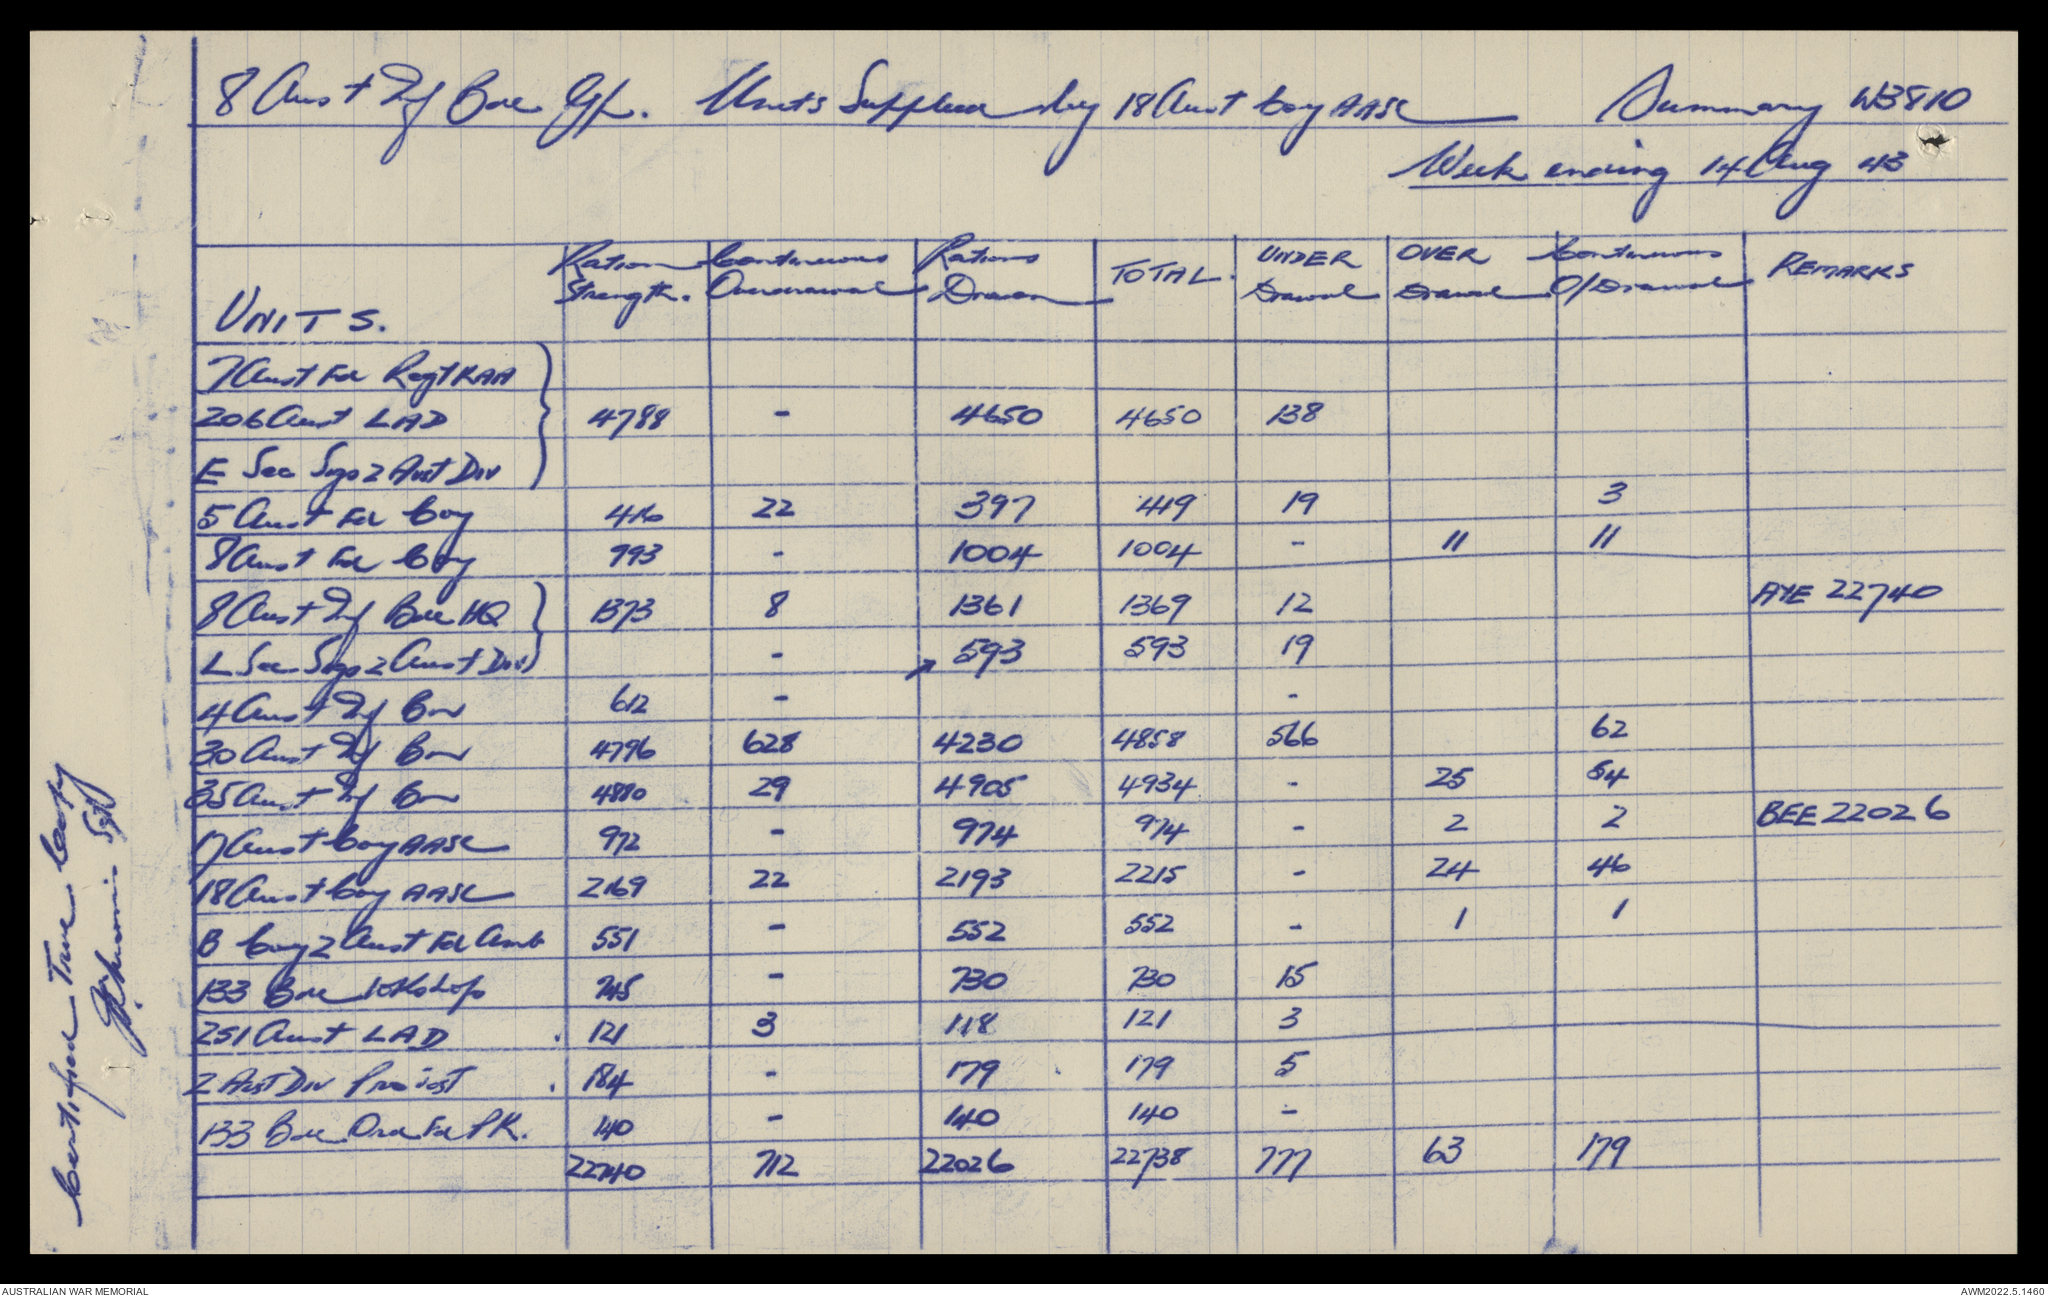 8 Aust Inf Bde Gp. Units Supplied by 18 Aust Coy AASC Summary W3810
Week ending 14 Aug 43
UNITS. Ration Strength. Continuous Overdrawal Rations Drawn TOTAL. UNDER Drawal OVER Drawal Continuous O/Drawal REMARKS
7 Aust Fd Regt RAA
206 Aust LAD 4788 - 4650 4650 138
E Sec Sigs 2 Aust Div
5 Aust Fd Coy 416 22 397 419 19 3
8 Aust Fd Coy 993 - 1004 1004 - 11 11
8 Aust Inf Bde HQ 1373 8 1361 1369 12 AYE 22740
L Sec Sigs 2 Aust Div - 593 593 19
4 Aust Inf Bn 612 - -
30 Aust Inf Bn 4796 628 4230 4858 566 62
35 Aust Inf Bn 4880 29 4905 4934 - 25 54
17 Aust Coy AASC 972 - 974 974 - 2 2 BEE 22026
18 Aust Coy AASC 2169 22 2193 2215 - 24 46
B Coy 2 Aust Fd Amb 551 - 552 552 - 1 1
133 Bde Wkshops 745 - 730 730 15
251 Aust LAD 121 3 118 121 3
2 Aust Div Provost 184 - 179 179 5
133 Bde Ord Fd PK. 140 - 140 140 -
22740 712 22026 22738 777 63 179
Certified True Copy
Sgt
AUSTRALIAN WAR MEMORIAL
AWM2022.5.1460